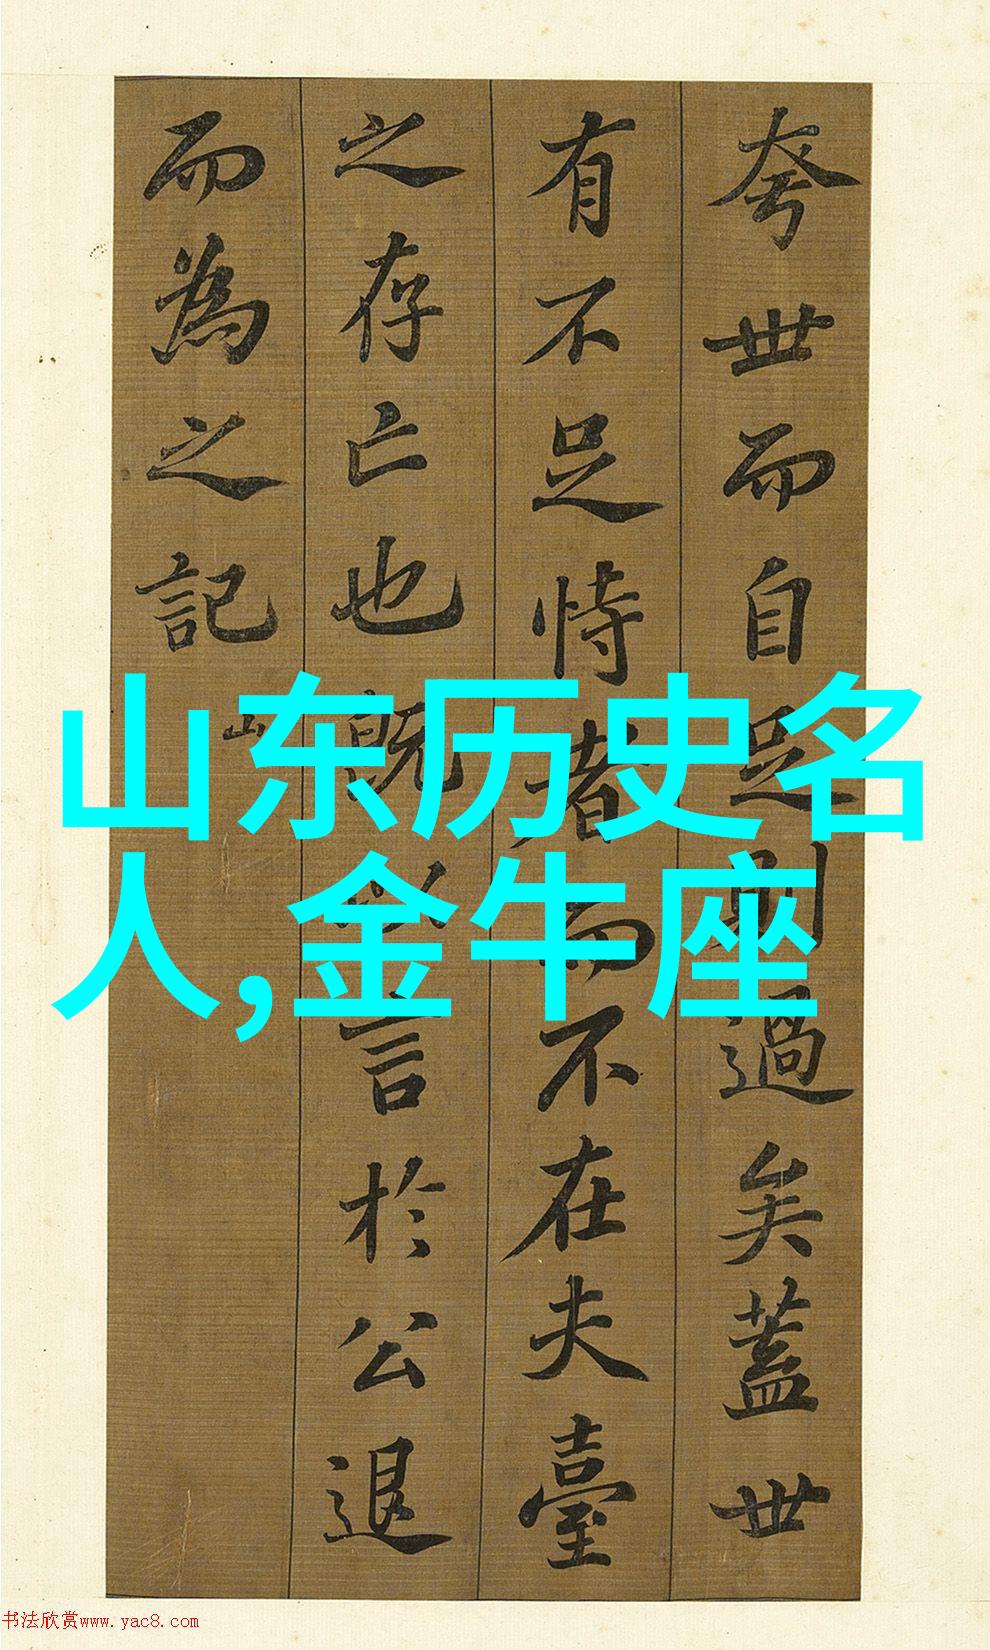 夸世而自足則過矣蓋世
有不足恃者而不在夫臺
之存亡也既以言於公退
而為之記
山东历史名
人,金牛座
书法欣赏www.yac8.com